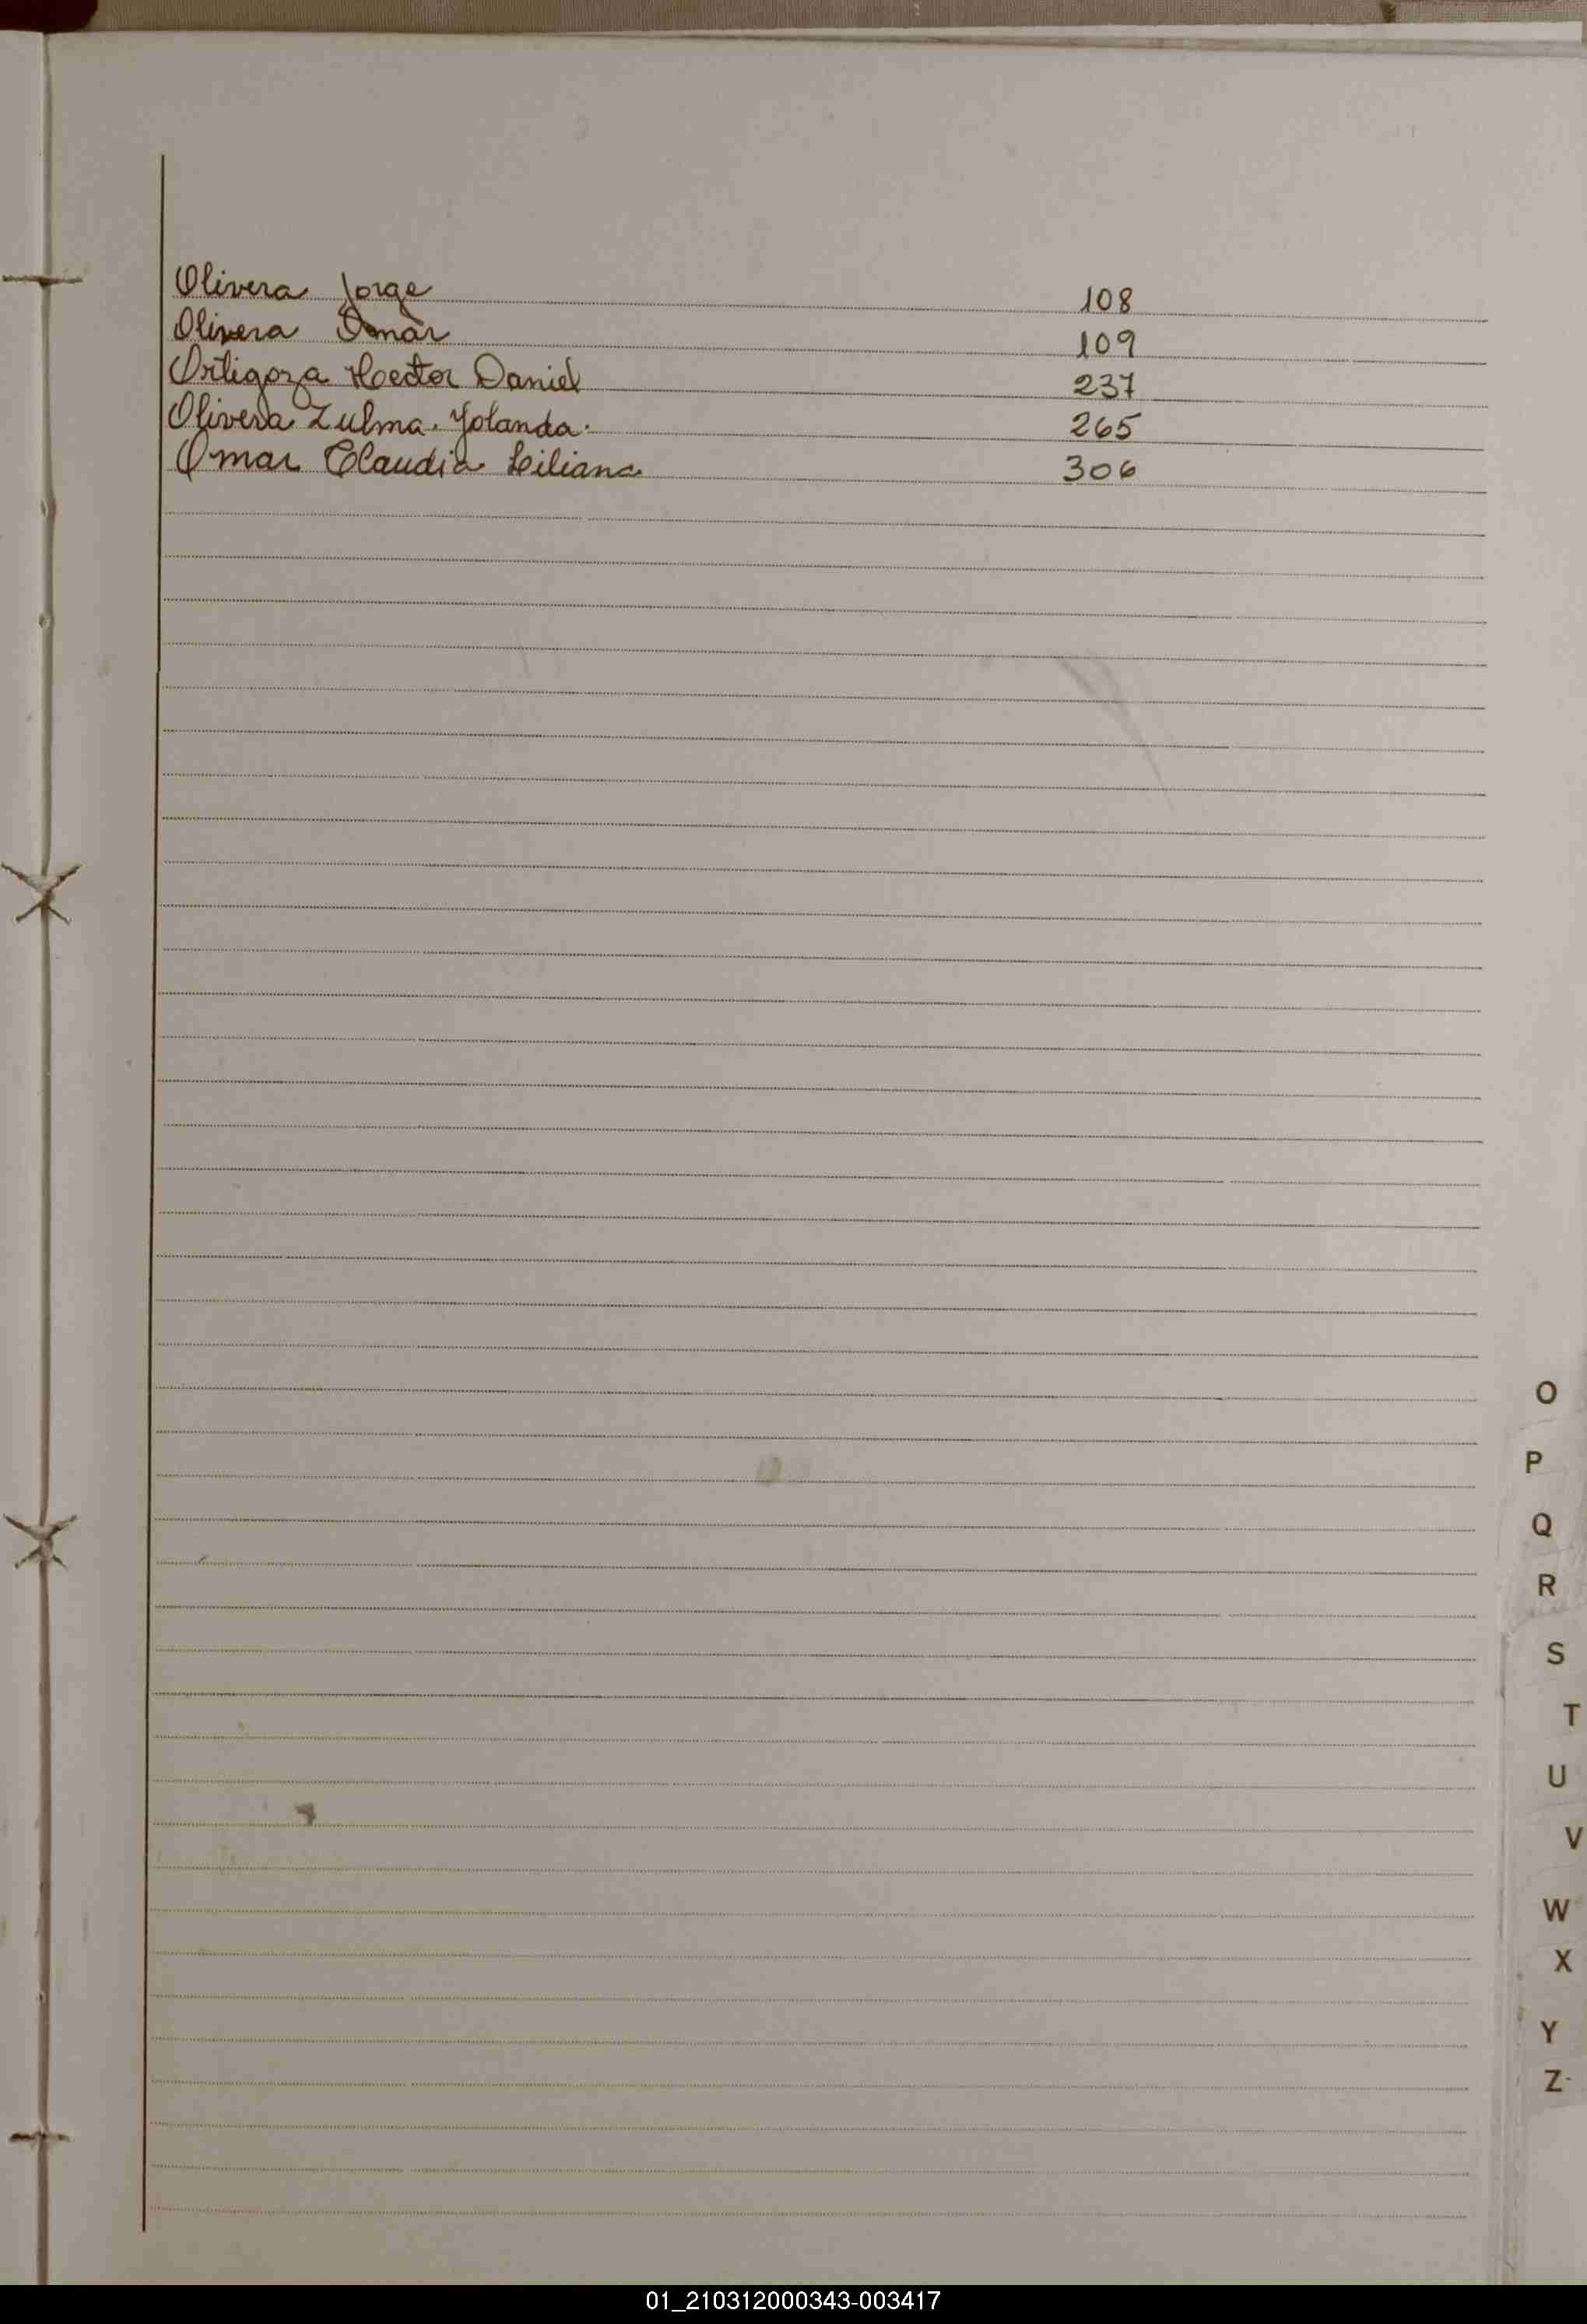 Olivera Jorge 108
Olivera Omar 109
Ortigoza Hector Daniel 237
Olivera Zulma Yolanda. 265
Omar Claudia Liliana 306
O
P
Q
R
S
T
U
V
W
X
Y
Z
01_210312000343-003417